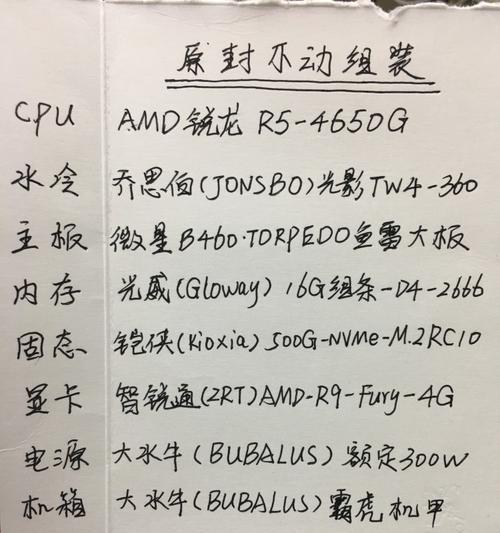 原封不动组装
CPU AMD锐龙 R5-4650G
水冷 乔思伯(JONSBO)光影TW4-360
主板 微星B460·TORPEDO鱼雷大板
内存 光威(Gloway)16G组条-D4-2666
固态 铠侠(Kioxia)500G-NVMe-M.2RC10
显卡 智锐通(ZRT)AMD-R9-Fury-4G
电源 大水牛(BUBALUS)额定300W
机箱 大水牛(BUBALUS)霸虎机甲